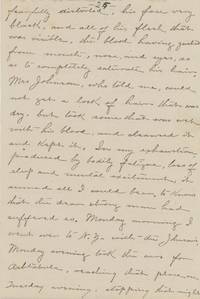 25
fearfully distorted, his face very
black, and all of his flesh that
was visible, the blood having gushed
from mouth, nose and eyes, so
as to completely saturate his hair.
Mrs. Johnson, who told me, could
not get a lock of hair that was
dry, but took some that was wet
with his blood, and cleansed it
and kept it. In my exhaustion,
produced by bodily fatigue, loss of
sleep and mental excitement, it
seemed all I could bear, to know
that the dear strong man had
suffered so. Monday morning I
went over to N. Y. with the Johnsons,
Monday evening took the cars for
Ashtabula, reaching that place on
Tuesday evening, stopping that night